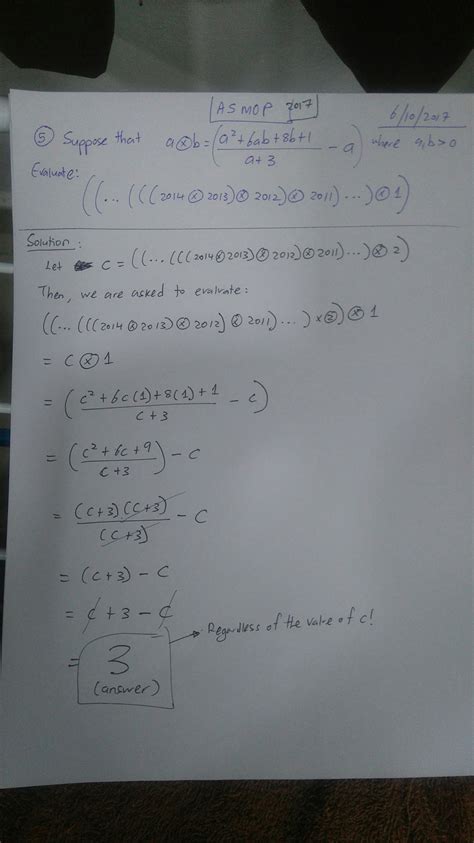 ASMOP 2017
6/10/2017
⑤ Suppose that a⊗b = (a²+6ab+8b+1 / a+3 - a) where a,b>0
Evaluate:
((...(((2014⊗2013)⊗2012)⊗2011)...)⊗1)
Solution:
Let c = ((...(((2014⊗2013)⊗2012)⊗2011)...)⊗2)
Then, we are asked to evaluate:
((...(((2014⊗2013)⊗2012)⊗2011)...)×2))⊗1
= c⊗1
= (c²+6c(1)+8(1)+1 / c+3 - c)
= (c²+6c+9 / c+3) - c
= (c+3)(c+3) / (c+3) - c
= (c+3) - c
= c + 3 - c
= 3
(answer)
Regardless of the value of c!